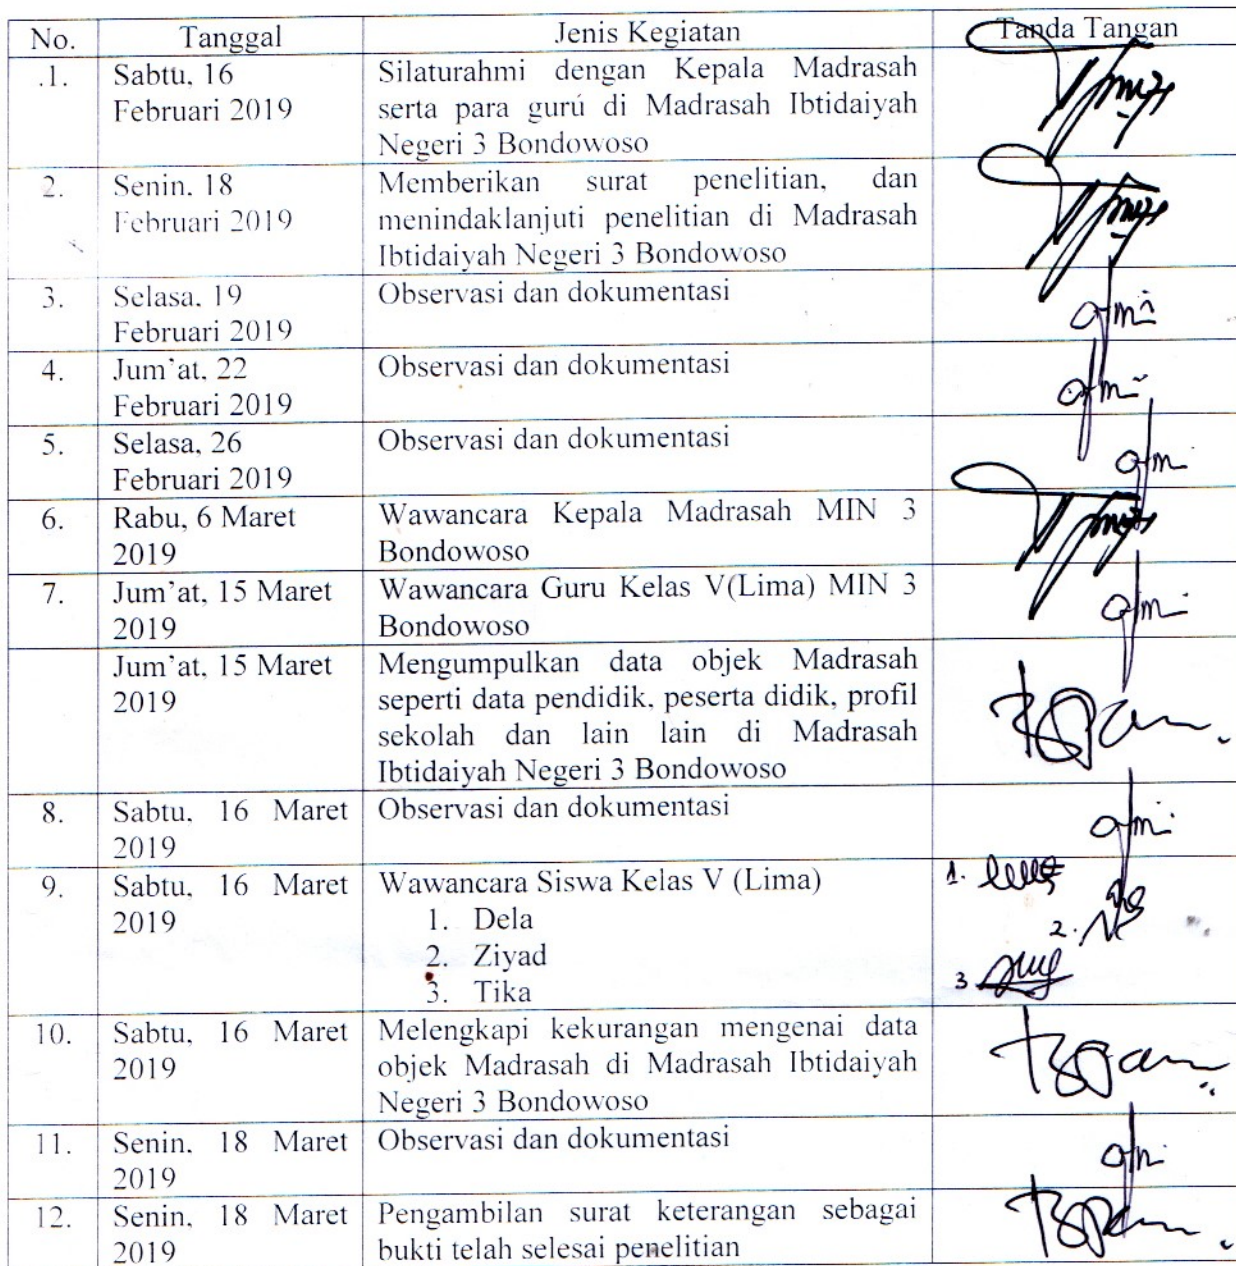 No. Tanggal Jenis Kegiatan Tanda Tangan
.1. Sabtu, 16 Silaturahmi dengan Kepala Madrasah
Februari 2019 serta para guru di Madrasah Ibtidaiyah
Negeri 3 Bondowoso
2. Senin, 18 Memberikan surat penelitian, dan
Februari 2019 menindaklanjuti penelitian di Madrasah
Ibtidaiyah Negeri 3 Bondowoso
3. Selasa, 19 Observasi dan dokumentasi
Februari 2019
4. Jum'at, 22 Observasi dan dokumentasi
Februari 2019
5. Selasa, 26 Observasi dan dokumentasi
Februari 2019
6. Rabu, 6 Maret Wawancara Kepala Madrasah MIN 3
2019 Bondowoso
7. Jum'at, 15 Maret Wawancara Guru Kelas V(Lima) MIN 3
2019 Bondowoso
Jum'at, 15 Maret Mengumpulkan data objek Madrasah
2019 seperti data pendidik, peserta didik, profil
sekolah dan lain lain di Madrasah
Ibtidaiyah Negeri 3 Bondowoso
8. Sabtu, 16 Maret Observasi dan dokumentasi
2019
9. Sabtu, 16 Maret Wawancara Siswa Kelas V (Lima) 1.
2019 1. Dela
2. Ziyad 2.
3. Tika 3
10. Sabtu, 16 Maret Melengkapi kekurangan mengenai data
2019 objek Madrasah di Madrasah Ibtidaiyah
Negeri 3 Bondowoso
11. Senin, 18 Maret Observasi dan dokumentasi
2019
12. Senin, 18 Maret Pengambilan surat keterangan sebagai
2019 bukti telah selesai penelitian